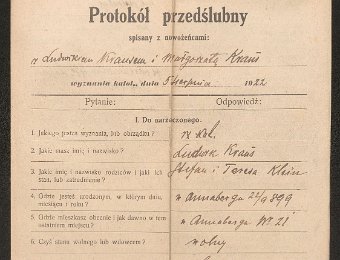 Protokół przedślubny
spisany z nowożeńcami:
z Ludwikiem Krausem i Małgorzatą Kraus
wyznania katol., dnia 5 sierpnia 1922
Pytanie: Odpowiedź:
I. Do narzeczonego.
1. Jakiego jesteś wyznania, lub obrządku? rz. kat.
2. Jakie masz imię i nazwisko? Ludwik Kraus
3. Jakie imię i nazwisko rodziców i jaki ich Stefan i Teresa Klein
stan, lub zatrudnienie?
4. Gdzie jesteś urodzonym, w którym dniu, w Annaberga 899
miesiącu i roku?
5. Gdzie mieszkasz obecnie i jak dawno w tem w Annaberga Nr 21
ostatniem miejscu?
6. Czyś stanu wolnego lub wdowcem? wolny